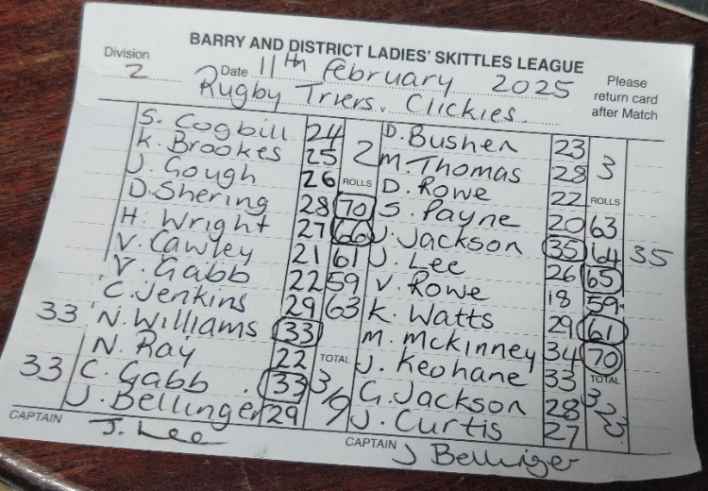 BARRY AND DISTRICT LADIES' SKITTLES LEAGUE
Division 2 Date 11th February 2025 Please return card after Match
Rugby Triers. Clickies.
S. Cogbill 24 2 D. Bushen 23 3
K. Brookes 25 M. Thomas 28
J. Gough 26 ROLLS D. Rowe 22 ROLLS
D. Shering 28 70 S. Payne 20 63
H. Wright 27 66 J. Jackson 35 64 35
V. Cawley 21 61 J. Lee 26 65
V. Gabb 22 59 V. Rowe 18 59
C. Jenkins 29 63 K. Watts 29 61
33 N. Williams 33 M. McKinney 34 70
N. Ray 22 TOTAL J. Keohane 33 TOTAL
33 C. Gabb 33 319 G. Jackson 28 323
J. Bellinger 29 J. Curtis 27
CAPTAIN J. Lee CAPTAIN J Bellinger